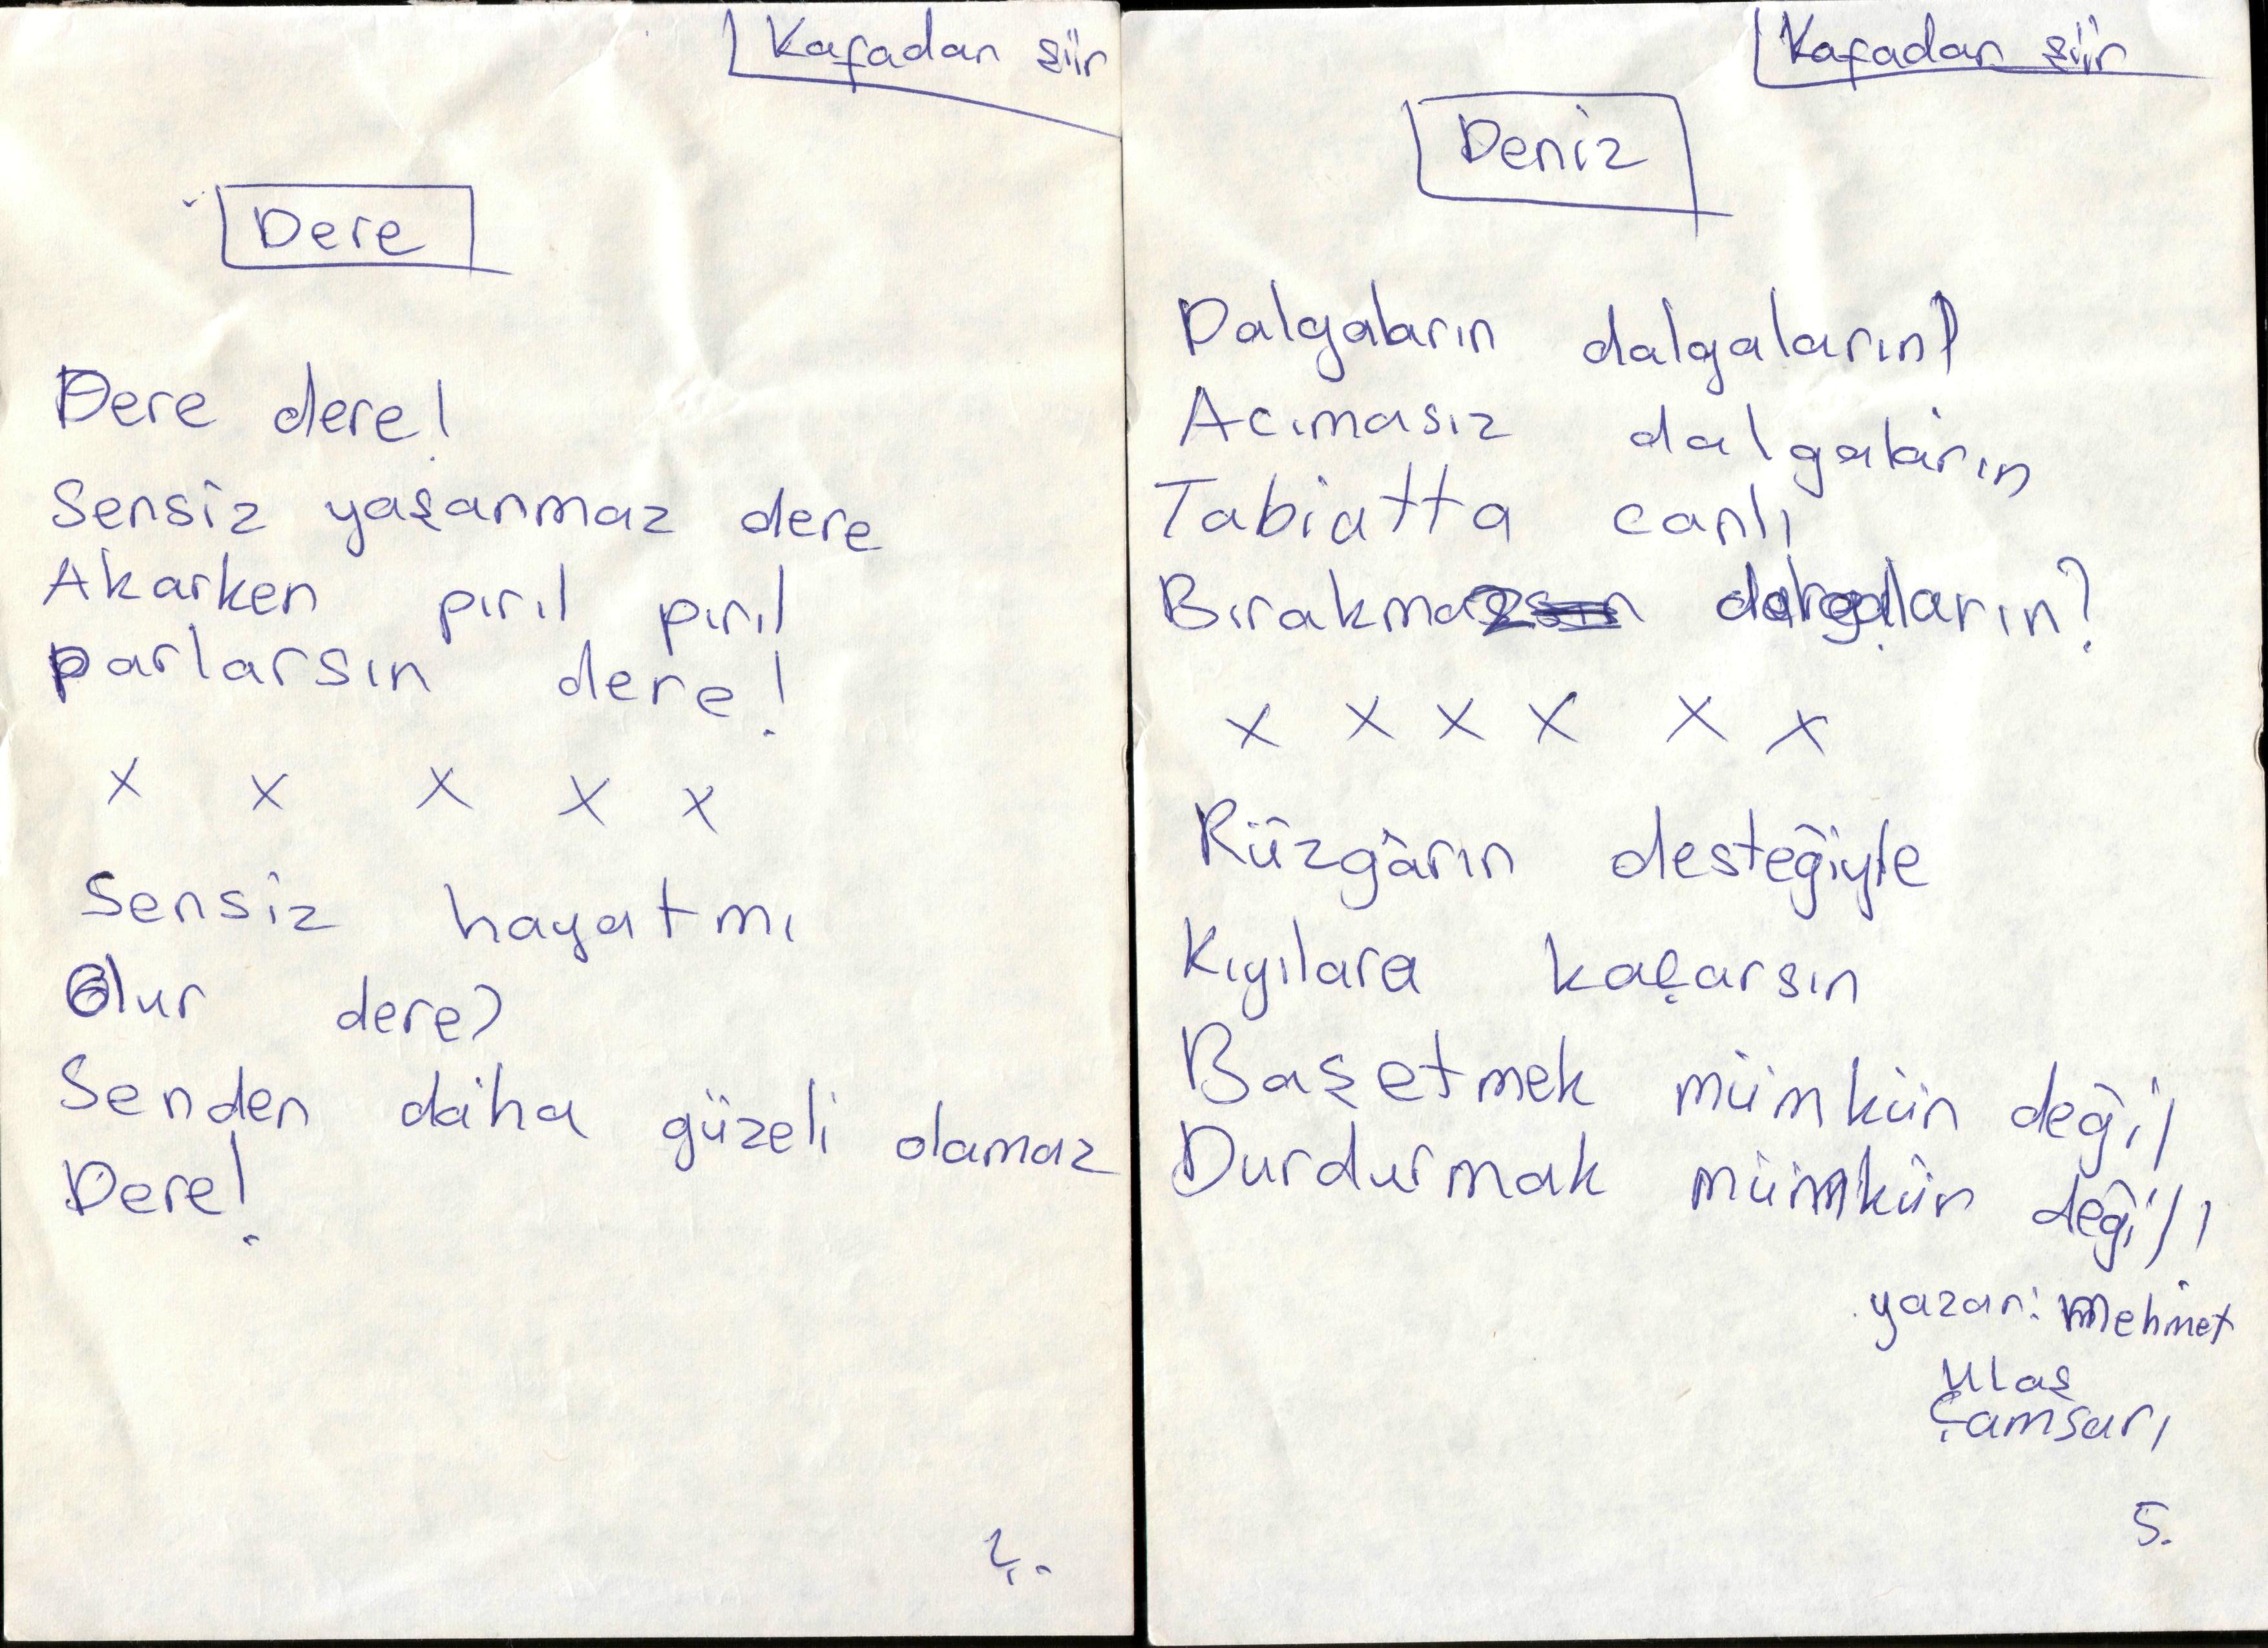 Kafadan şiir
Dere
Dere dere!
Sensiz yaşanmaz dere
Akarken pırıl pırıl
parlarsın dere!
x x x x x
Sensiz hayatmı
Olur dere?
Senden daha güzeli olamaz
Dere!
Kafadan şiir
Deniz
Dalgaların dalgaların!
Acımasız dalgaların
Tabiatta canlı
Bırakmaz dalgaların?
x x x x x x
Rüzgârın desteğiyle
Kıyılara kaçarsın
Başetmek mümkün değil
Durdurmak mümkün değil!
yazan: Mehmet
Ulaş
Çamsarı
5.